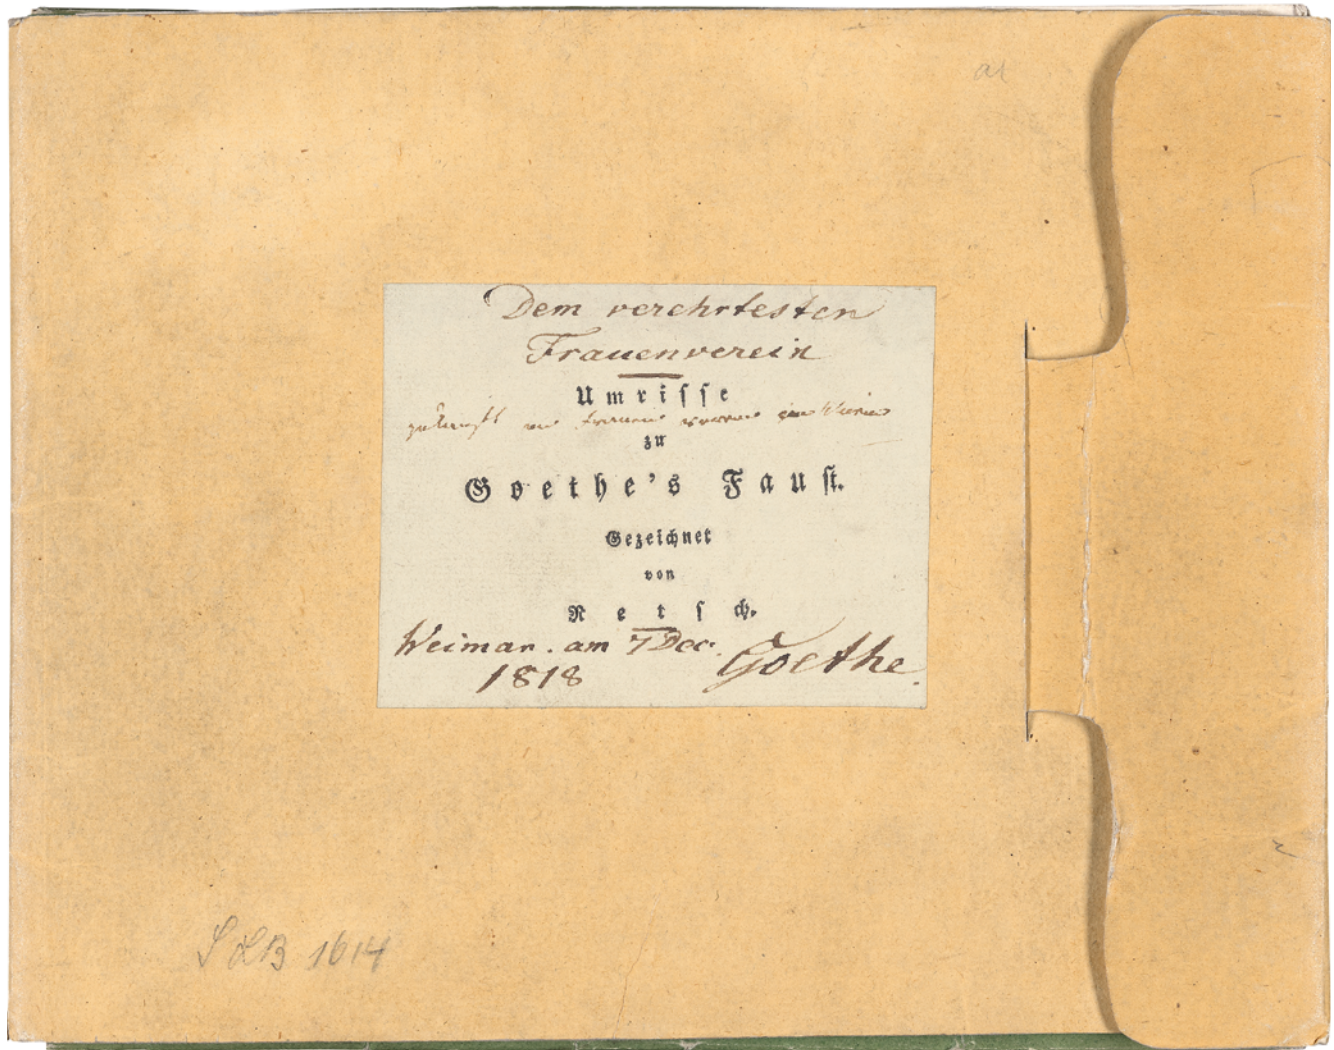 Dem verehrtesten
Frauenverein
Umriſſe
zu
Goethe's Fauſt.
Gezeichnet
von
Retſch.
Weimar. am 7 Dec.
1818
Goethe.
SLB 1614